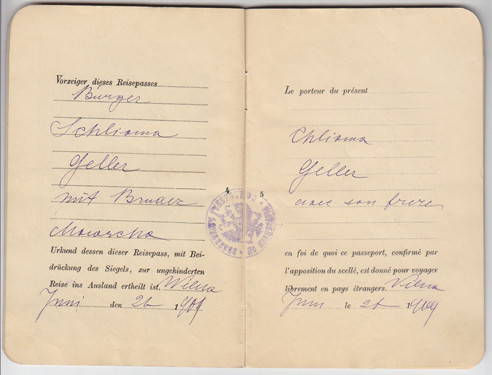 Vorzeiger dieses Reisepasses
Bürger
Schlioma
Geller
mit Bruder
Urkund dessen dieser Reisepass, mit Bei-
drückung des Siegels, zur ungehinderten
Reise ins Ausland ertheilt ist. Wilna
Juni den 26 19
4
5
Le porteur du présent
Chlioma
Geller
avec son frère
en foi de quoi ce passeport, confirmé par
l'apposition du scellé, est donné pour voyager
librement en pays étrangers. Vilna
Juin le 26 19